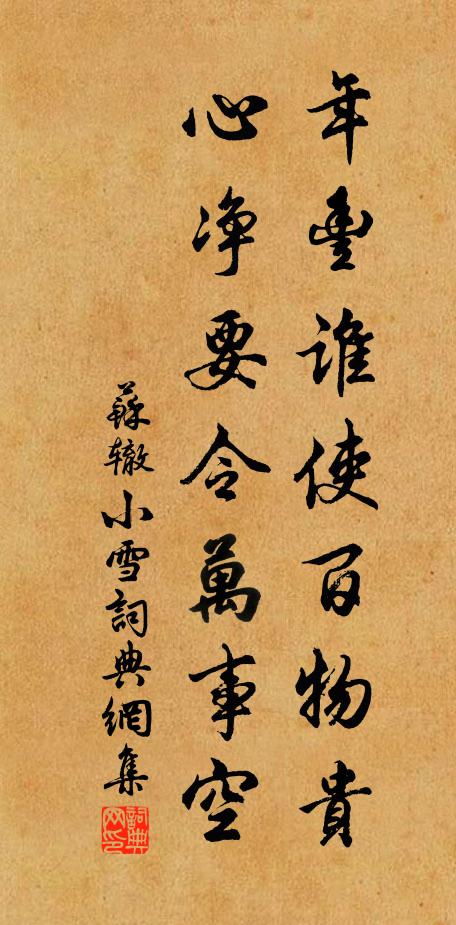 年豊誰使百物貴
心净要令萬事空
蘇辙小雪詞典網集
詞典
网印